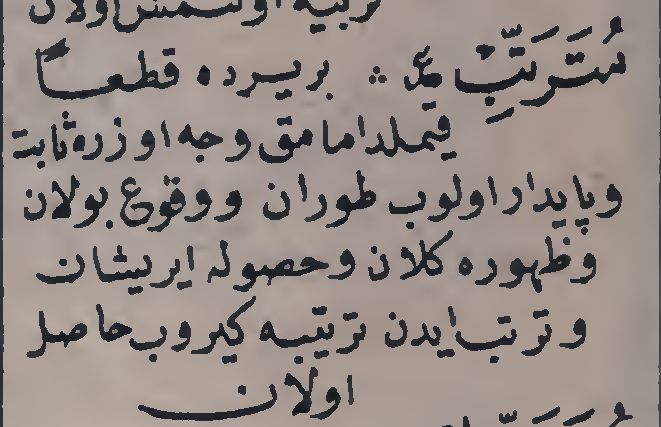 تربيه اولنمش اولان
مُتَرَتِّبْ ص ⁂ بر يرده قطعاً
قيملدامامق وجه اوزره ثابت
و پايدار اولوب طوران و وقوع بولان
و ظهوره كلان و حصوله ايريشان
و ترتب ايدن ترتيبه كيروب حاصل
اولان